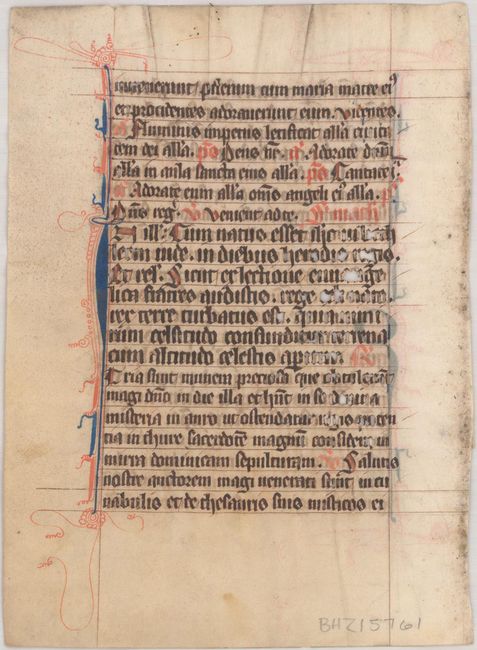 invenerunt puerum cum maria matre eiꝰ
et procidentes adoraverunt eum. Videntes.
Fluminis impetus letificat alla civita
tem dei alla. pˢ Deus nr̄. a᷒. Adorate dn̄m
alla in aula sancta eius alla. pˢ Cantate
Adorate eum alla om̄s angeli eiꝰ alla. pˢ
Dn̄s reg. Venient ad te.
Cum natus esset ihc in beth
leem iude. in diebus herodis regis.
Et rel. Sicut ex lectione evange
lica fratres audistis. rege celi nato.
rex terre turbatus est. quia nimi
rum celsitudo confunditur terrena
cum altitudo celestis aperitur.
Tria sunt munera preciosa que obtulerunt
magi dn̄o in die illa et hn̄t in se divina
misteria in auro ut ostendatur regis poten
tia in thure sacerdotē magnū considera in
mirra dominicam sepulturam. Salutis
nostre auctorem magi venerati sunt in cu
nabulis et de thesauris suis misticos ei
BHZ15761